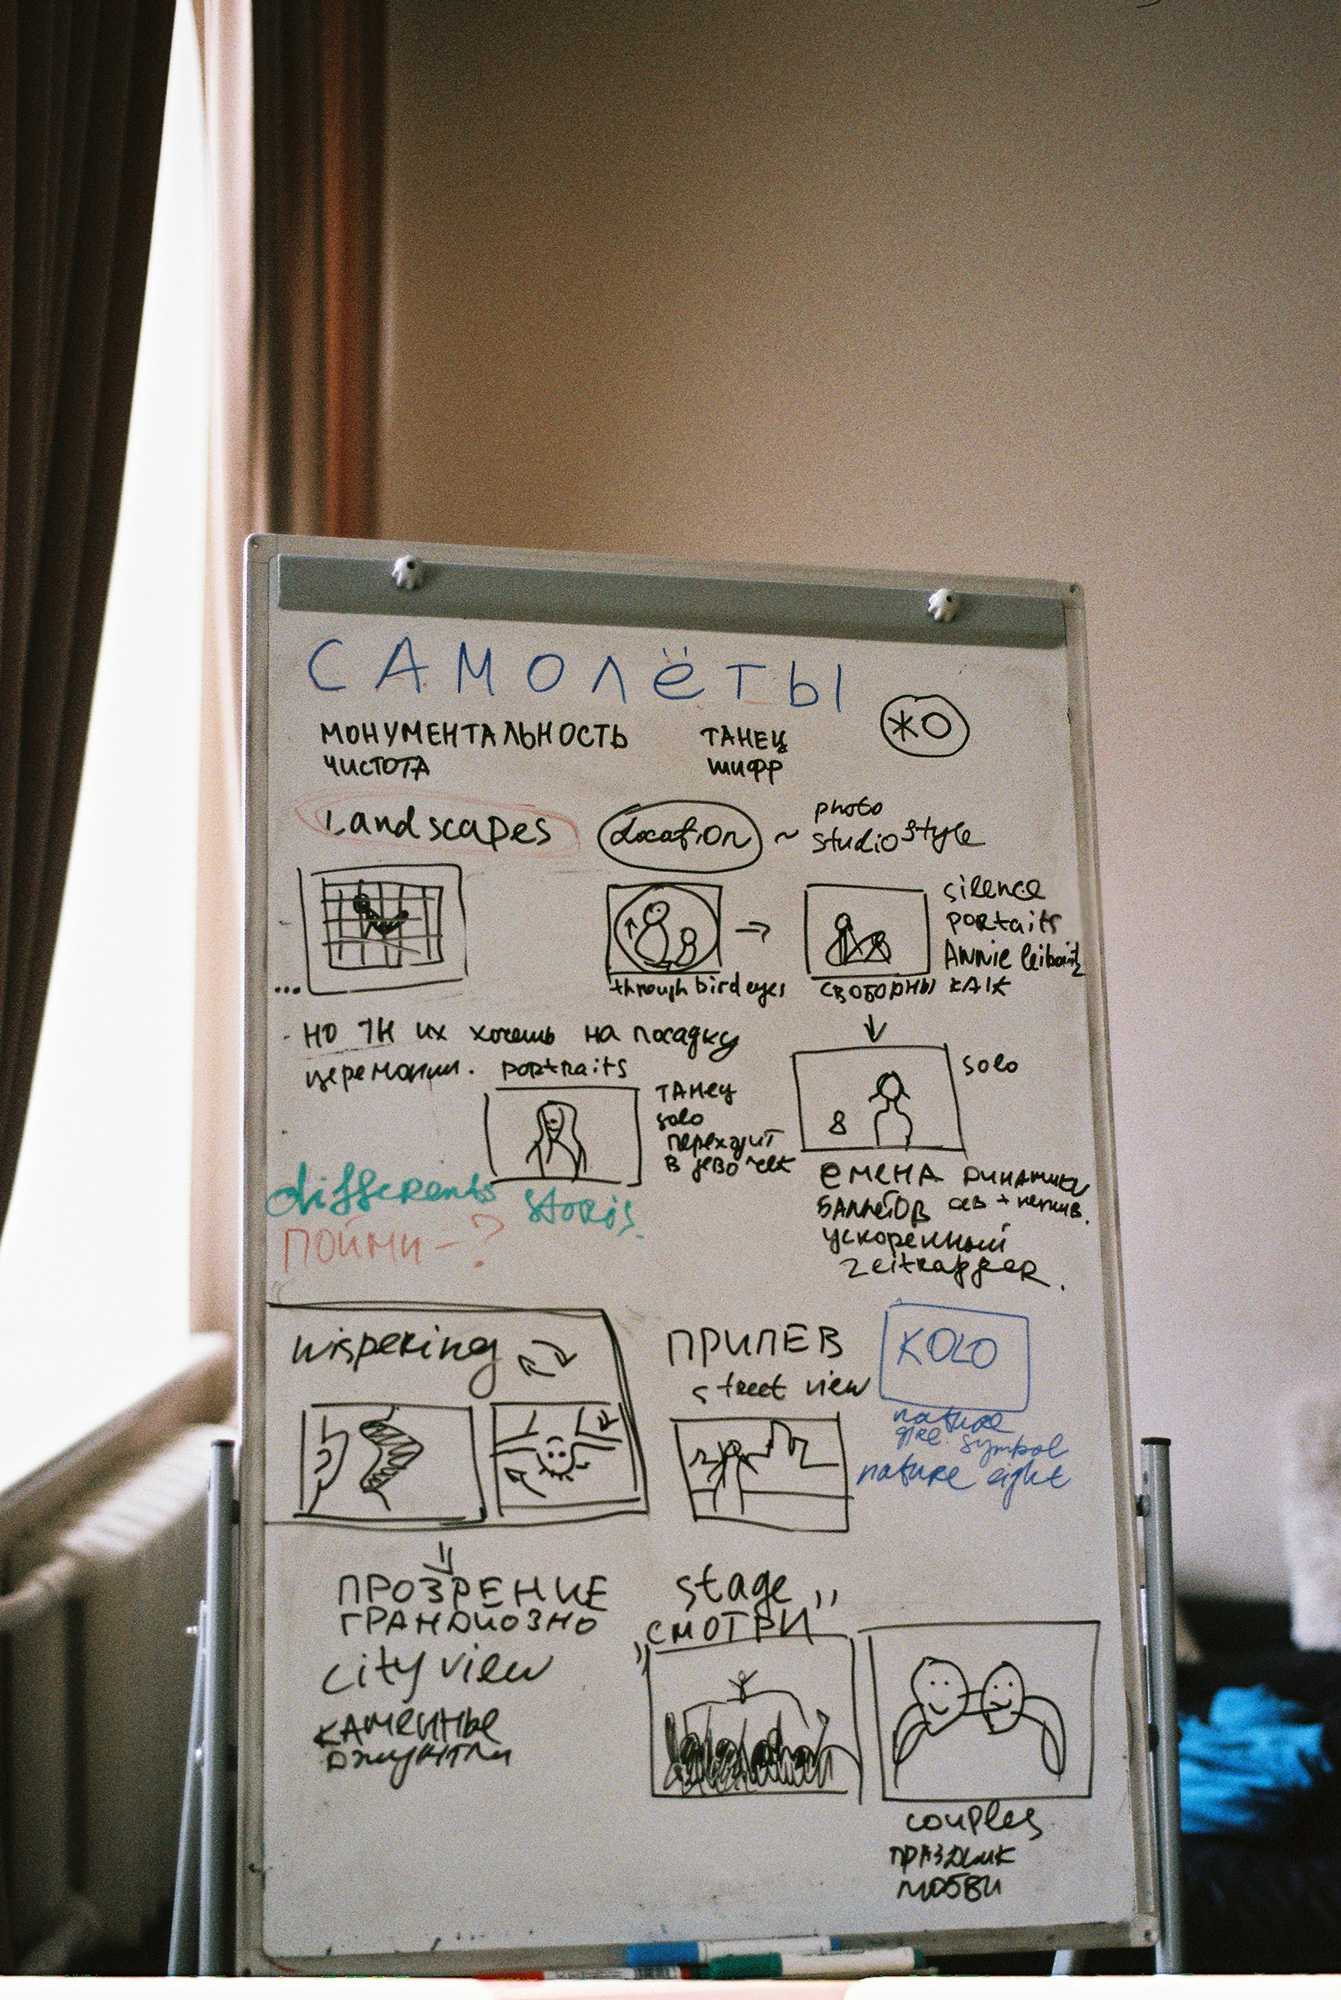 САМОЛЁТЫ
МОНУМЕНТАЛЬНОСТЬ
ЧИСТОТА
ТАНЕЦ
ШИФР
ЖО
Landscapes
Location ~ photo
studio style
through bird eyes
silence
portraits
ANNIE
СВОБОДНЫ КАК
...
НО ИХ хочешь на посадку
церемонии.
portraits
ТАНЕЦ
solo
переходит
в девочек
solo
8
СМЕНА ДИНАМИКИ
УСКОРЕННЫЙ
zeitraffer.
differents storis.
ПОЙМИ - ?
wispering
ПРИПЕВ
street view
KOLO
nature
symbol
nature eight
ПРОЗРЕНИЕ
ГРАНДИОЗНО
city view
КАМЕННЫЕ
ДЖУНГЛИ
stage "
"СМОТРИ
couples
ПРАЗДНИК
ЛЮБВИ